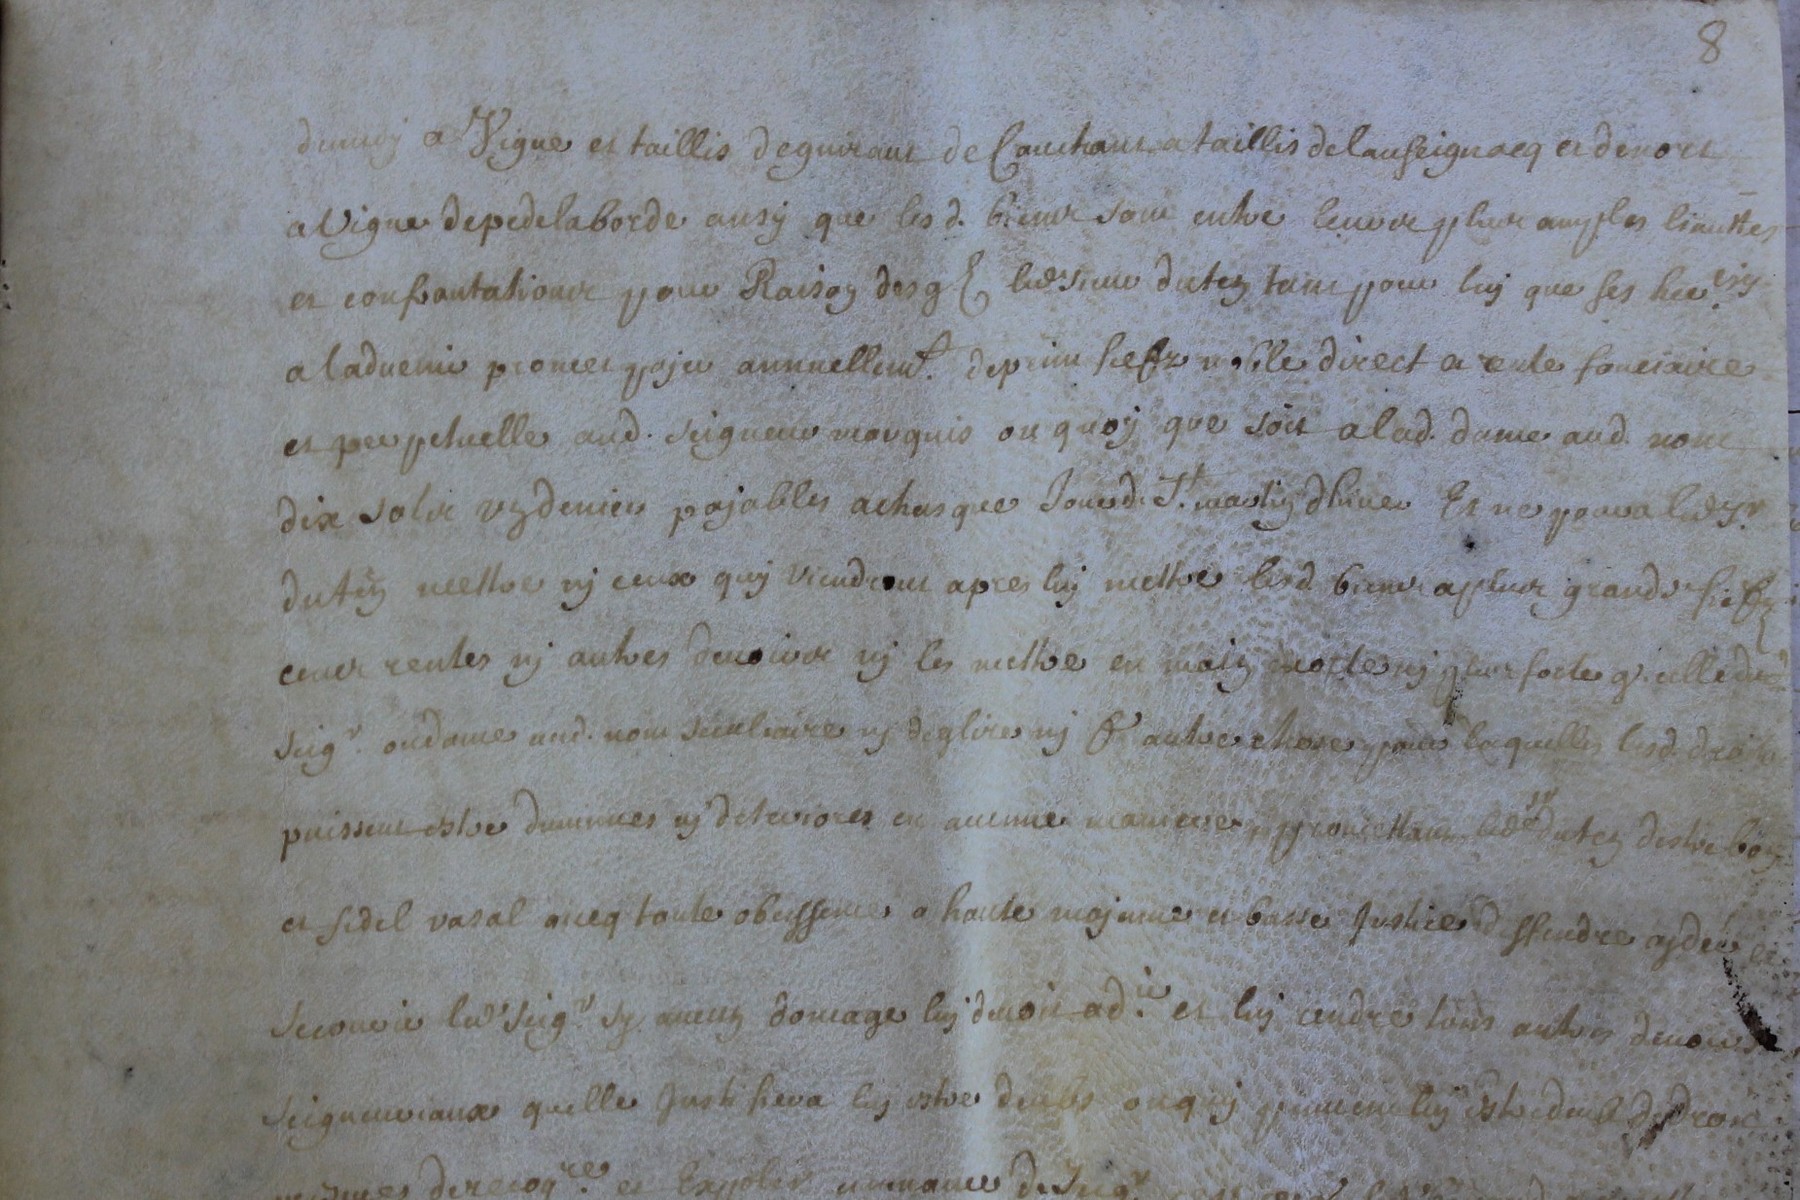 8
dumidy a Vigne et taillis deguiraut de Couchant a taillis delauseignacq et denort
a Vigne depedelaborde ansy que lesd. biens sont entre leurs plus amples limittes
et confrontations pour Raison desq lesd Sieur dutez tant pour luy que ses
a ladvenir promet payer annuellemt. deprim fiefz noble direct a rente fonciaire
et perpetuelle aud. seigneur marquis ou quoy que soit a lad. dame aud. nom
dix solz ung denier pajables achasque Jour de St. martin dhiver Et ne poura led sr
dutez mettre ny ceux quy viendront apres luy mettre lesd. biens a plus grands fiefz
cens rentes ny autres devoirs ny les mettre en main morte ny plus forte q. celle dud.
seigr. ou dame aud. nom seculiaire ny deglize ny autre chose pour lesquelles lesd. droits
puissent estre diminues ny deteriores en aucune maniere promettant led sr dutez destre bon
et fidel vasal avecq toute obeissance a haute moyenne et basse Justice deffendre ayder et
secourir led seigr. sy aucun domage luy devoit ad. et luy rendre tous autres devoirs
seigneuriaux quelle Justifiera luy estre deubs ou quy pouvent luy estre deubs de droit
mesmes derecoqre. et Exploir de seigr.